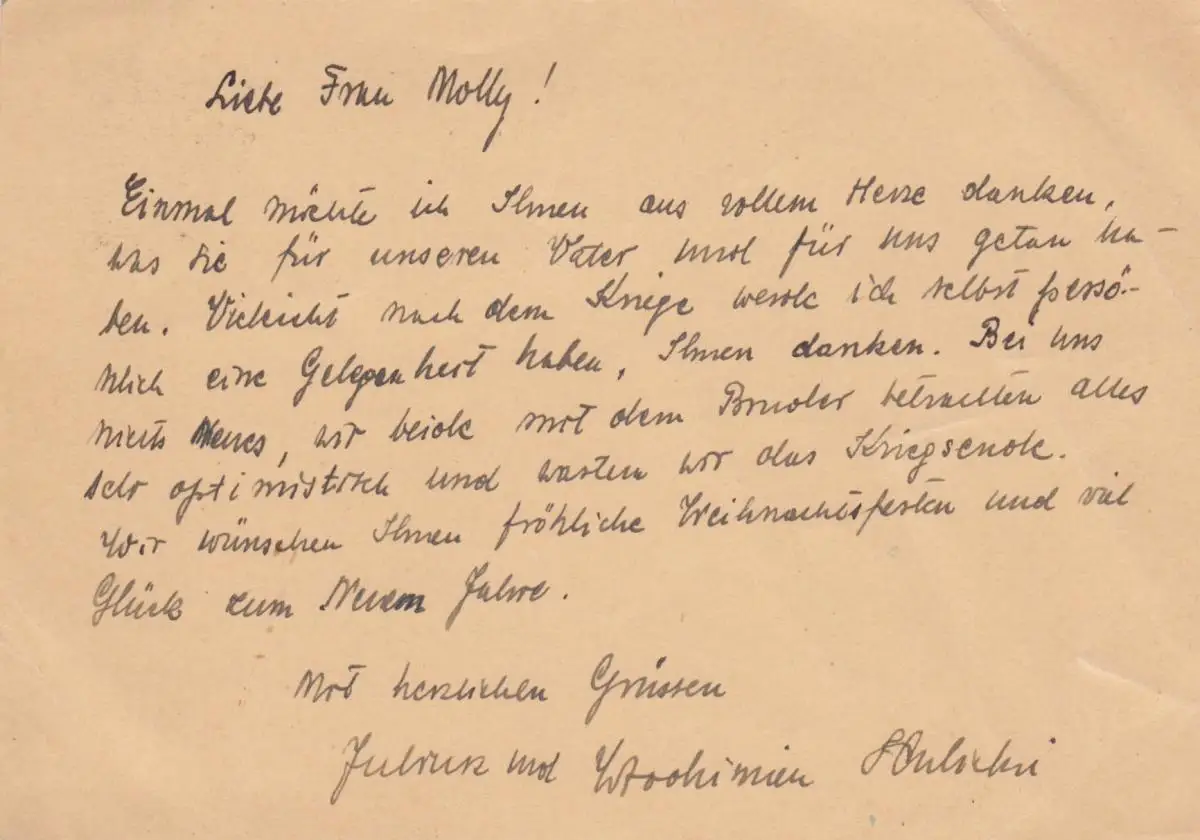 Liebe Frau Molly!
Einmal möchte ich Ihnen aus vollem Herze danken,
was Sie für unseren Vater und für uns getan ha-
ben. Vieleicht nach dem Kriege werde ich selbst persö-
nlich eine Gelegenheit haben, Ihnen danken. Bei uns
nichts Neues, wir beide mit dem Bruder betrachten alles
sehr optimistisch und warten wir das Kriegsende.
Wir wünschen Ihnen fröhliche Weihnachtsfesten und viel
Glück zum Neuem Jahre.
Mit herzlichen Grüssen
Juliusz und Włodzimierz